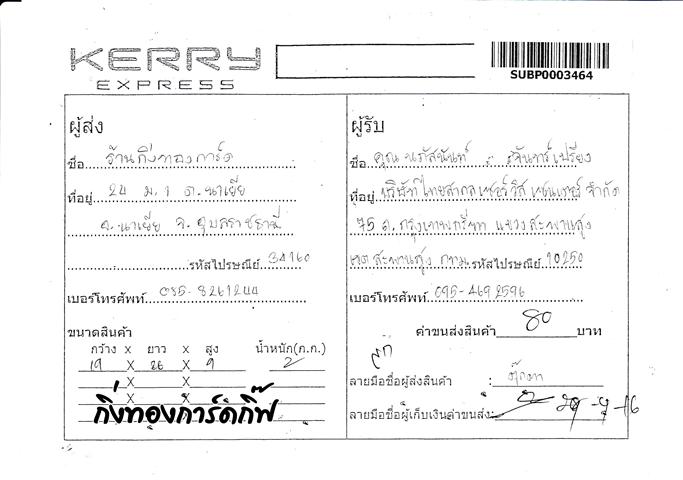 KERRY
EXPRESS
SUBP0003464
ผู้ส่ง
ชื่อ ร้านกิ่งทองการ์ด
ที่อยู่ 24 ม.1 ต.นาเยีย
อ.นาเยีย จ.อุบลราชธานี
รหัสไปรษณีย์ 34160
เบอร์โทรศัพท์ 085-8261244
ขนาดสินค้า
กว้าง X ยาว X สูง น้ำหนัก(ก.ก.)
19 X 26 X 9 2
X X
X X
กิ่งทองการ์ดกิ๊ฟ
ผู้รับ
ชื่อ คุณ นภัสนันท์ จันทร์เปรียง
ที่อยู่ บริษัทไทยสากลเซอร์วิส เซนเตอร์ จำกัด
75 ถ.กรุงเทพกรีฑา แขวงสะพานสูง
เขตสะพานสูง กทม. รหัสไปรษณีย์ 10250
เบอร์โทรศัพท์ 095-4692596
ค่าขนส่งสินค้า 80 บาท
ลายมือชื่อผู้ส่งสินค้า : ตุ๊กตา
ลายมือชื่อผู้เก็บเงินค่าขนส่ง: